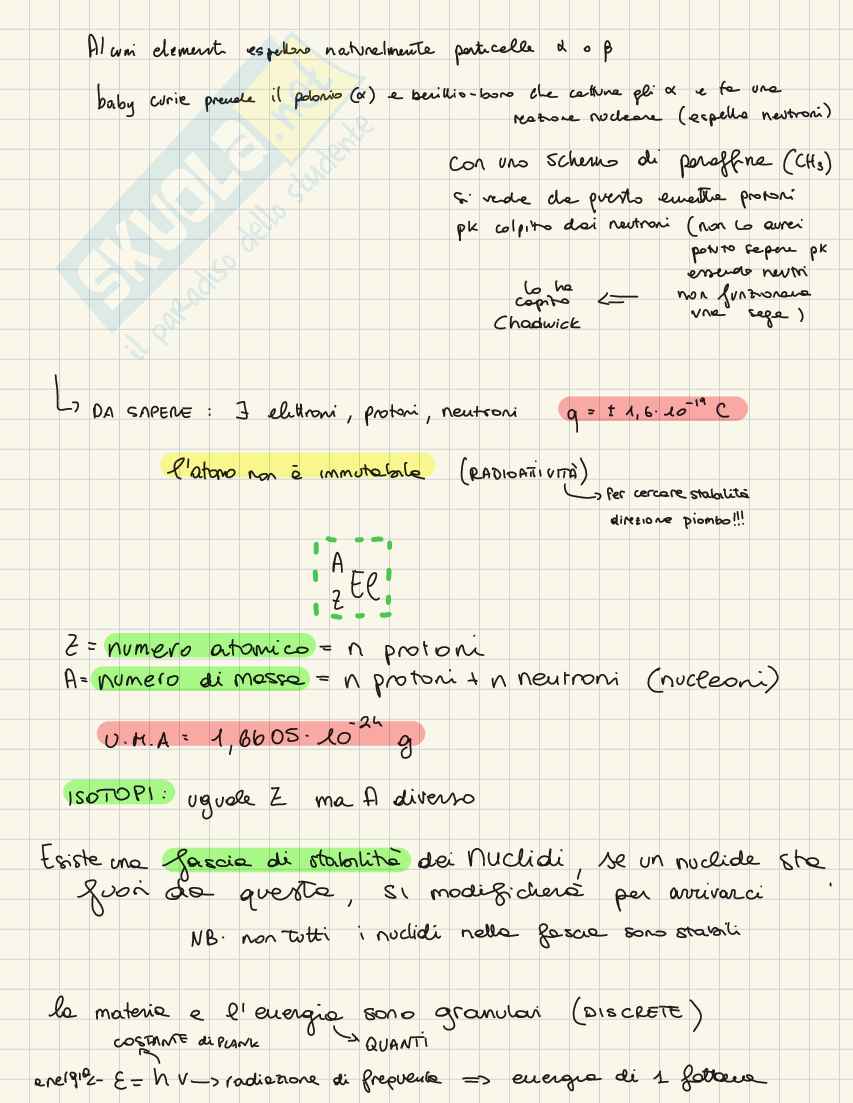 Alcuni elementi espellono naturalmente particelle α o β
baby curie prende il polonio (α) e berillio-boro che cattura gli α e fa una
reazione nucleare (espelle neutroni)
SKUOLA.net
il paradiso dello studente
Con uno schermo di paraffina (CH₃)
si vede che questo emette protoni
pk colpito dai neutroni (non lo avrei
potuto sapere pk
essendo neutri
non funzionava
una sega)
⇐
lo ha
capito
Chadwick
↳ DA SAPERE : ∃ elettroni, protoni, neutroni q = ± 1,6·10⁻¹⁹ C
l'atomo non è immutabile (RADIOATIVITÀ)
↳ Per cercare stabilità
direzione piombo!!!
A
Z El
Z = numero atomico = n protoni
A= numero di massa = n protoni + n neutroni (nucleoni)
U.M.A = 1,6605·10⁻²⁴ g
ISOTOPI: uguale Z ma A diverso
Esiste una fascia di stabilità dei nuclidi, se un nuclide sta
fuori da questa, si modificherà per arrivarci
NB. non tutti i nuclidi nella fascia sono stabili
la materia e l'energia sono granulari (DISCRETE)
COSTANTE di PLANK
↳ QUANTI
energia- E = h ν → radiazione di frequenza ⇒ energia di 1 fotone